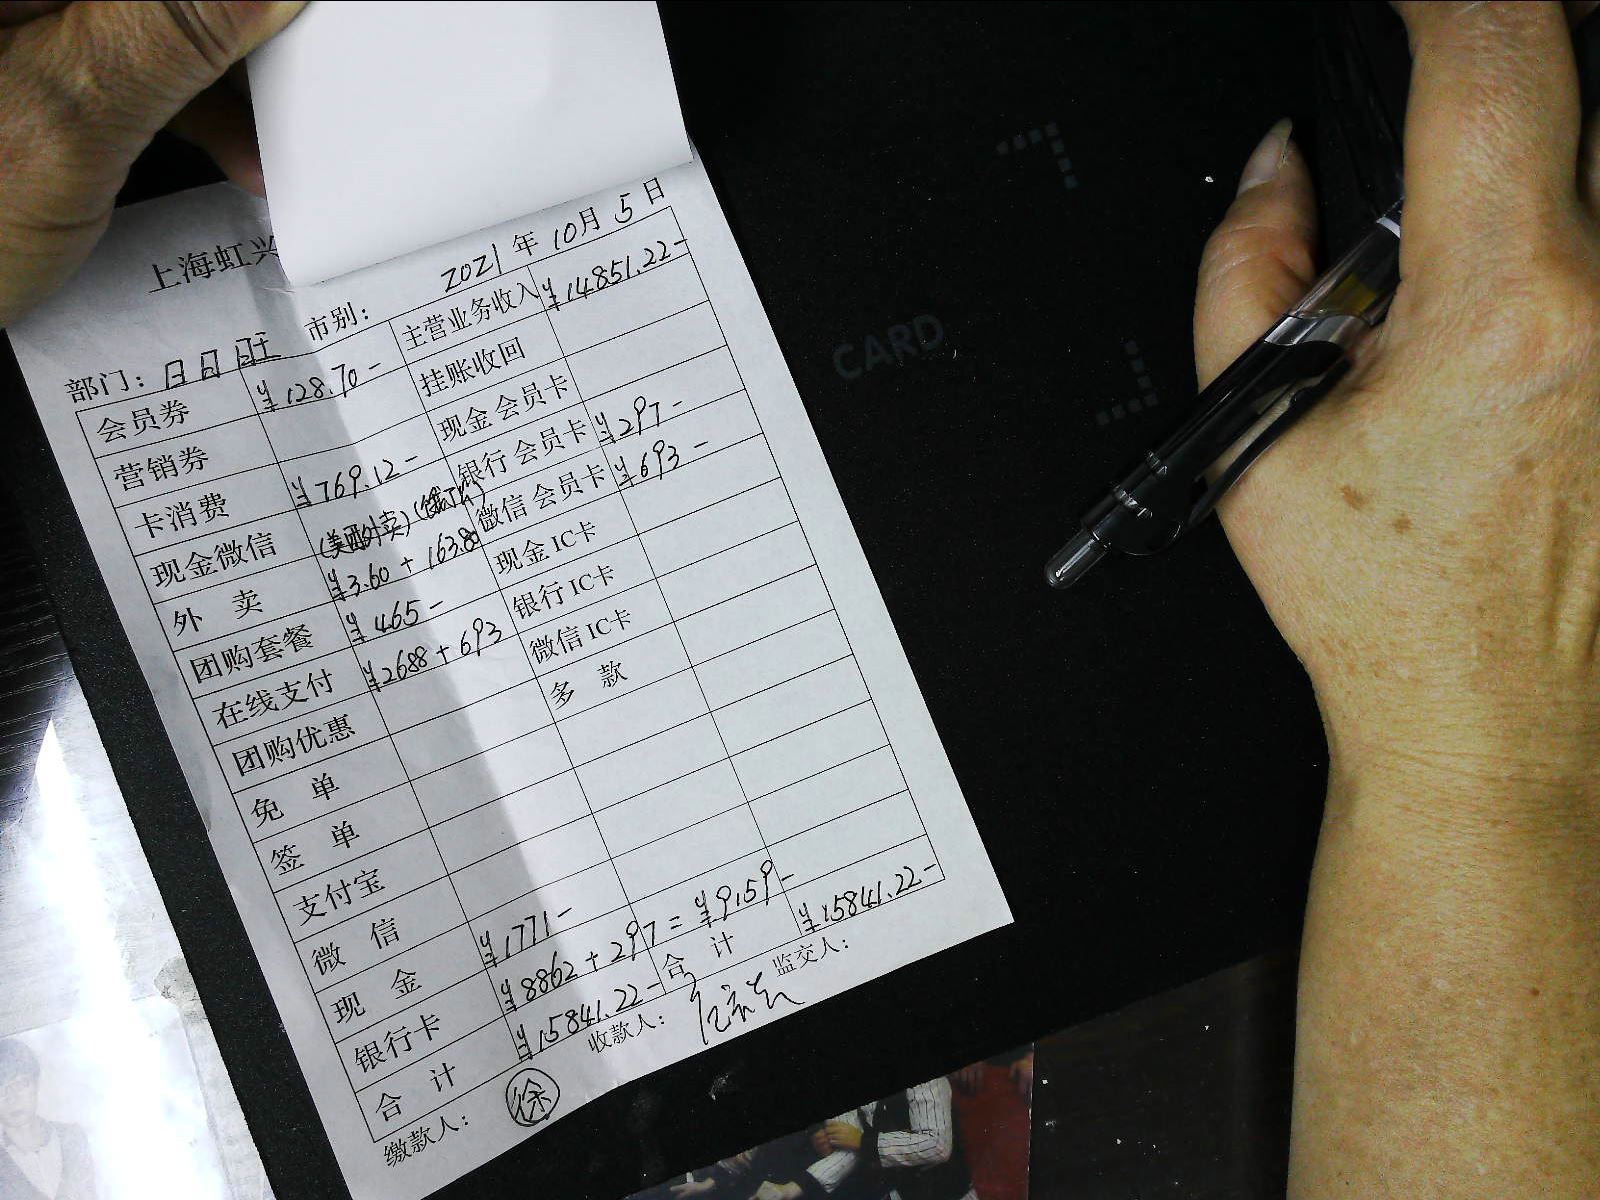 上海虹兴
2021 年 10 月 5 日
部门: 日日 市别:
会员券 ¥128.70- 主营业务收入 ¥14851.22-
营销券 挂账收回
卡消费 ¥769.12- 现金 会员卡
现金微信 (美团外卖) 银行 会员卡 ¥297-
外 卖 ¥3.60 + 163.80 微信 会员卡 ¥693-
团购套餐 ¥465- 现金 IC卡
在线支付 ¥2688 + 693 银行 IC卡
团购优惠 微信 IC卡
免 单 多 款
签 单
支付宝
微 信
现 金 ¥1771-
银行卡 ¥8862 + 297 = ¥9159-
合 计 ¥15841.22- 合 计 ¥15841.22-
缴款人: 徐 收款人: 监交人:
CARD